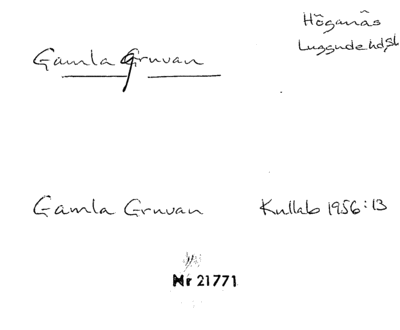 Höganäs
Luggude hd, Sk
Gamla Gruvan
Gamla Gruvan Kullab 1956:13
Nr 21771